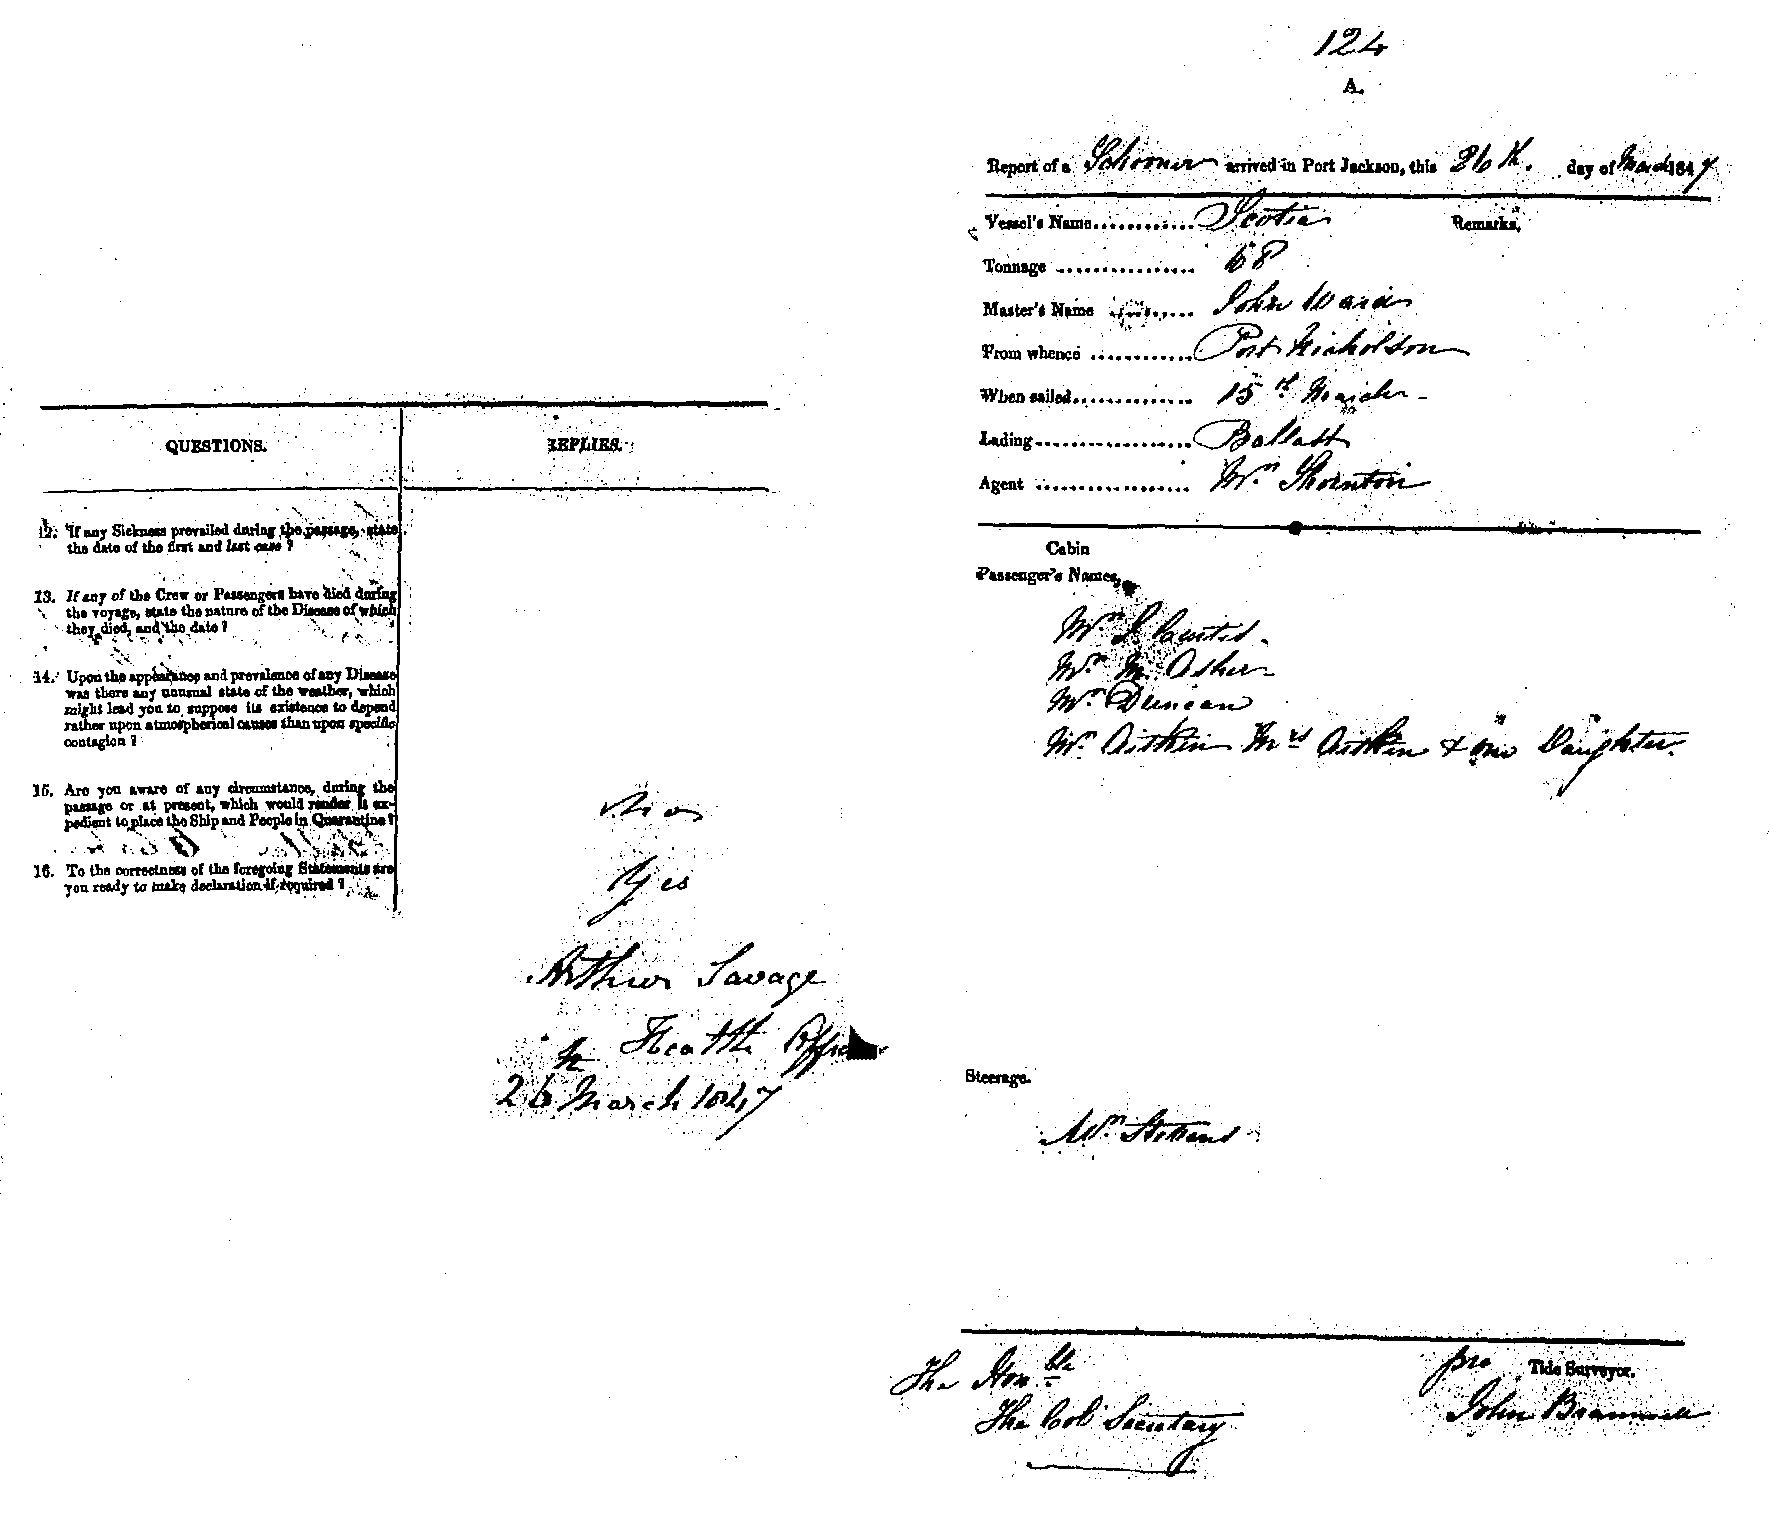 QUESTIONS.
REPLIES.
12. If any Sickness prevailed during the passage, state
the date of the first and last case ?
13. If any of the Crew or Passengers have died during
the voyage, state the nature of the Disease of which
they died, and the date ?
14. Upon the appearance and prevalence of any Disease
was there any unusual state of the weather, which
might lead you to suppose its existence to depend
rather upon atmospherical causes than upon specific
contagion ?
15. Are you aware of any circumstance, during the
passage or at present, which would render it ex-
pedient to place the Ship and People in Quarantine ?
No
16. To the correctness of the foregoing Statements are
you ready to make declaration if required ?
Yes
Arthur Savage
Health Officer
26 March 1847
124
A.
Report of a Schooner arrived in Port Jackson, this 26th. day of March 1847
Vessel's Name Scotia Remarks.
Tonnage 68
Master's Name John Ward
From whence Port Nicholson
When sailed 15th March
Lading Ballast
Agent Mr Thornton
Cabin
Passenger's Names,
Mr Curtis
Mr M Asher
Mr Duncan
Mr Aitkin Mrs Aitkin & one Daughter.
Steerage.
Mr
The Honble
The Col Secretary
pro Tide Surveyor.
John Bramwell